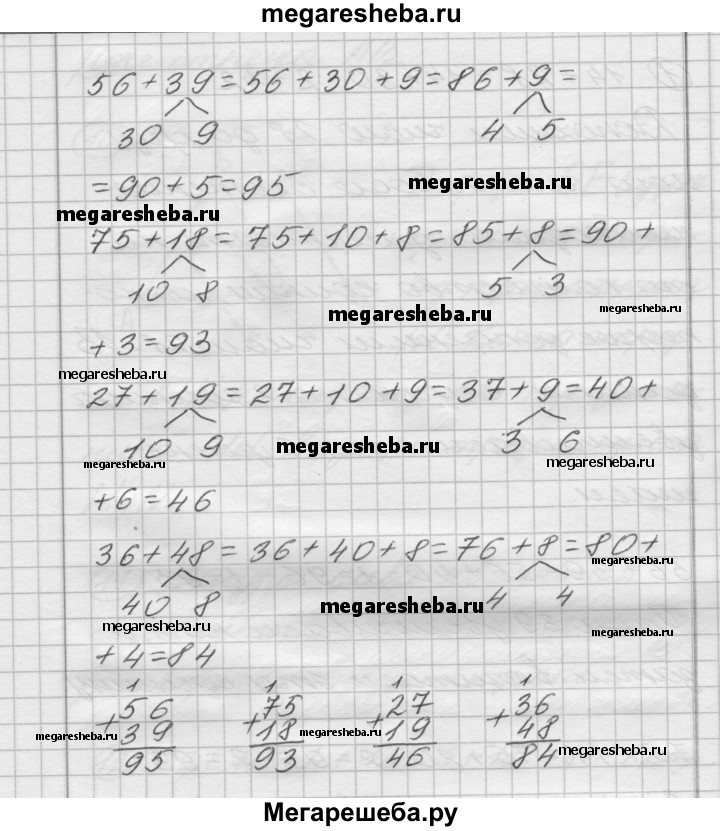 megaresheba.ru
56 + 39 = 56 + 30 + 9 = 86 + 9 =
30 9 4 5
= 90 + 5 = 95 megaresheba.ru
megaresheba.ru
75 + 18 = 75 + 10 + 8 = 85 + 8 = 90 +
10 8 5 3
megaresheba.ru megaresheba.ru
+ 3 = 93
megaresheba.ru
27 + 19 = 27 + 10 + 9 = 37 + 9 = 40 +
10 9 megaresheba.ru 3 6
megaresheba.ru megaresheba.ru
+ 6 = 46
36 + 48 = 36 + 40 + 8 = 76 + 8 = 80 +
megaresheba.ru
40 8 megaresheba.ru 4 4
megaresheba.ru megaresheba.ru
+ 4 = 84
1 1 1 1
+ 56 + 75 + 27 + 36
39 18 19 48
megaresheba.ru megaresheba.ru megaresheba.ru
95 93 46 84
Мегарешеба.ру